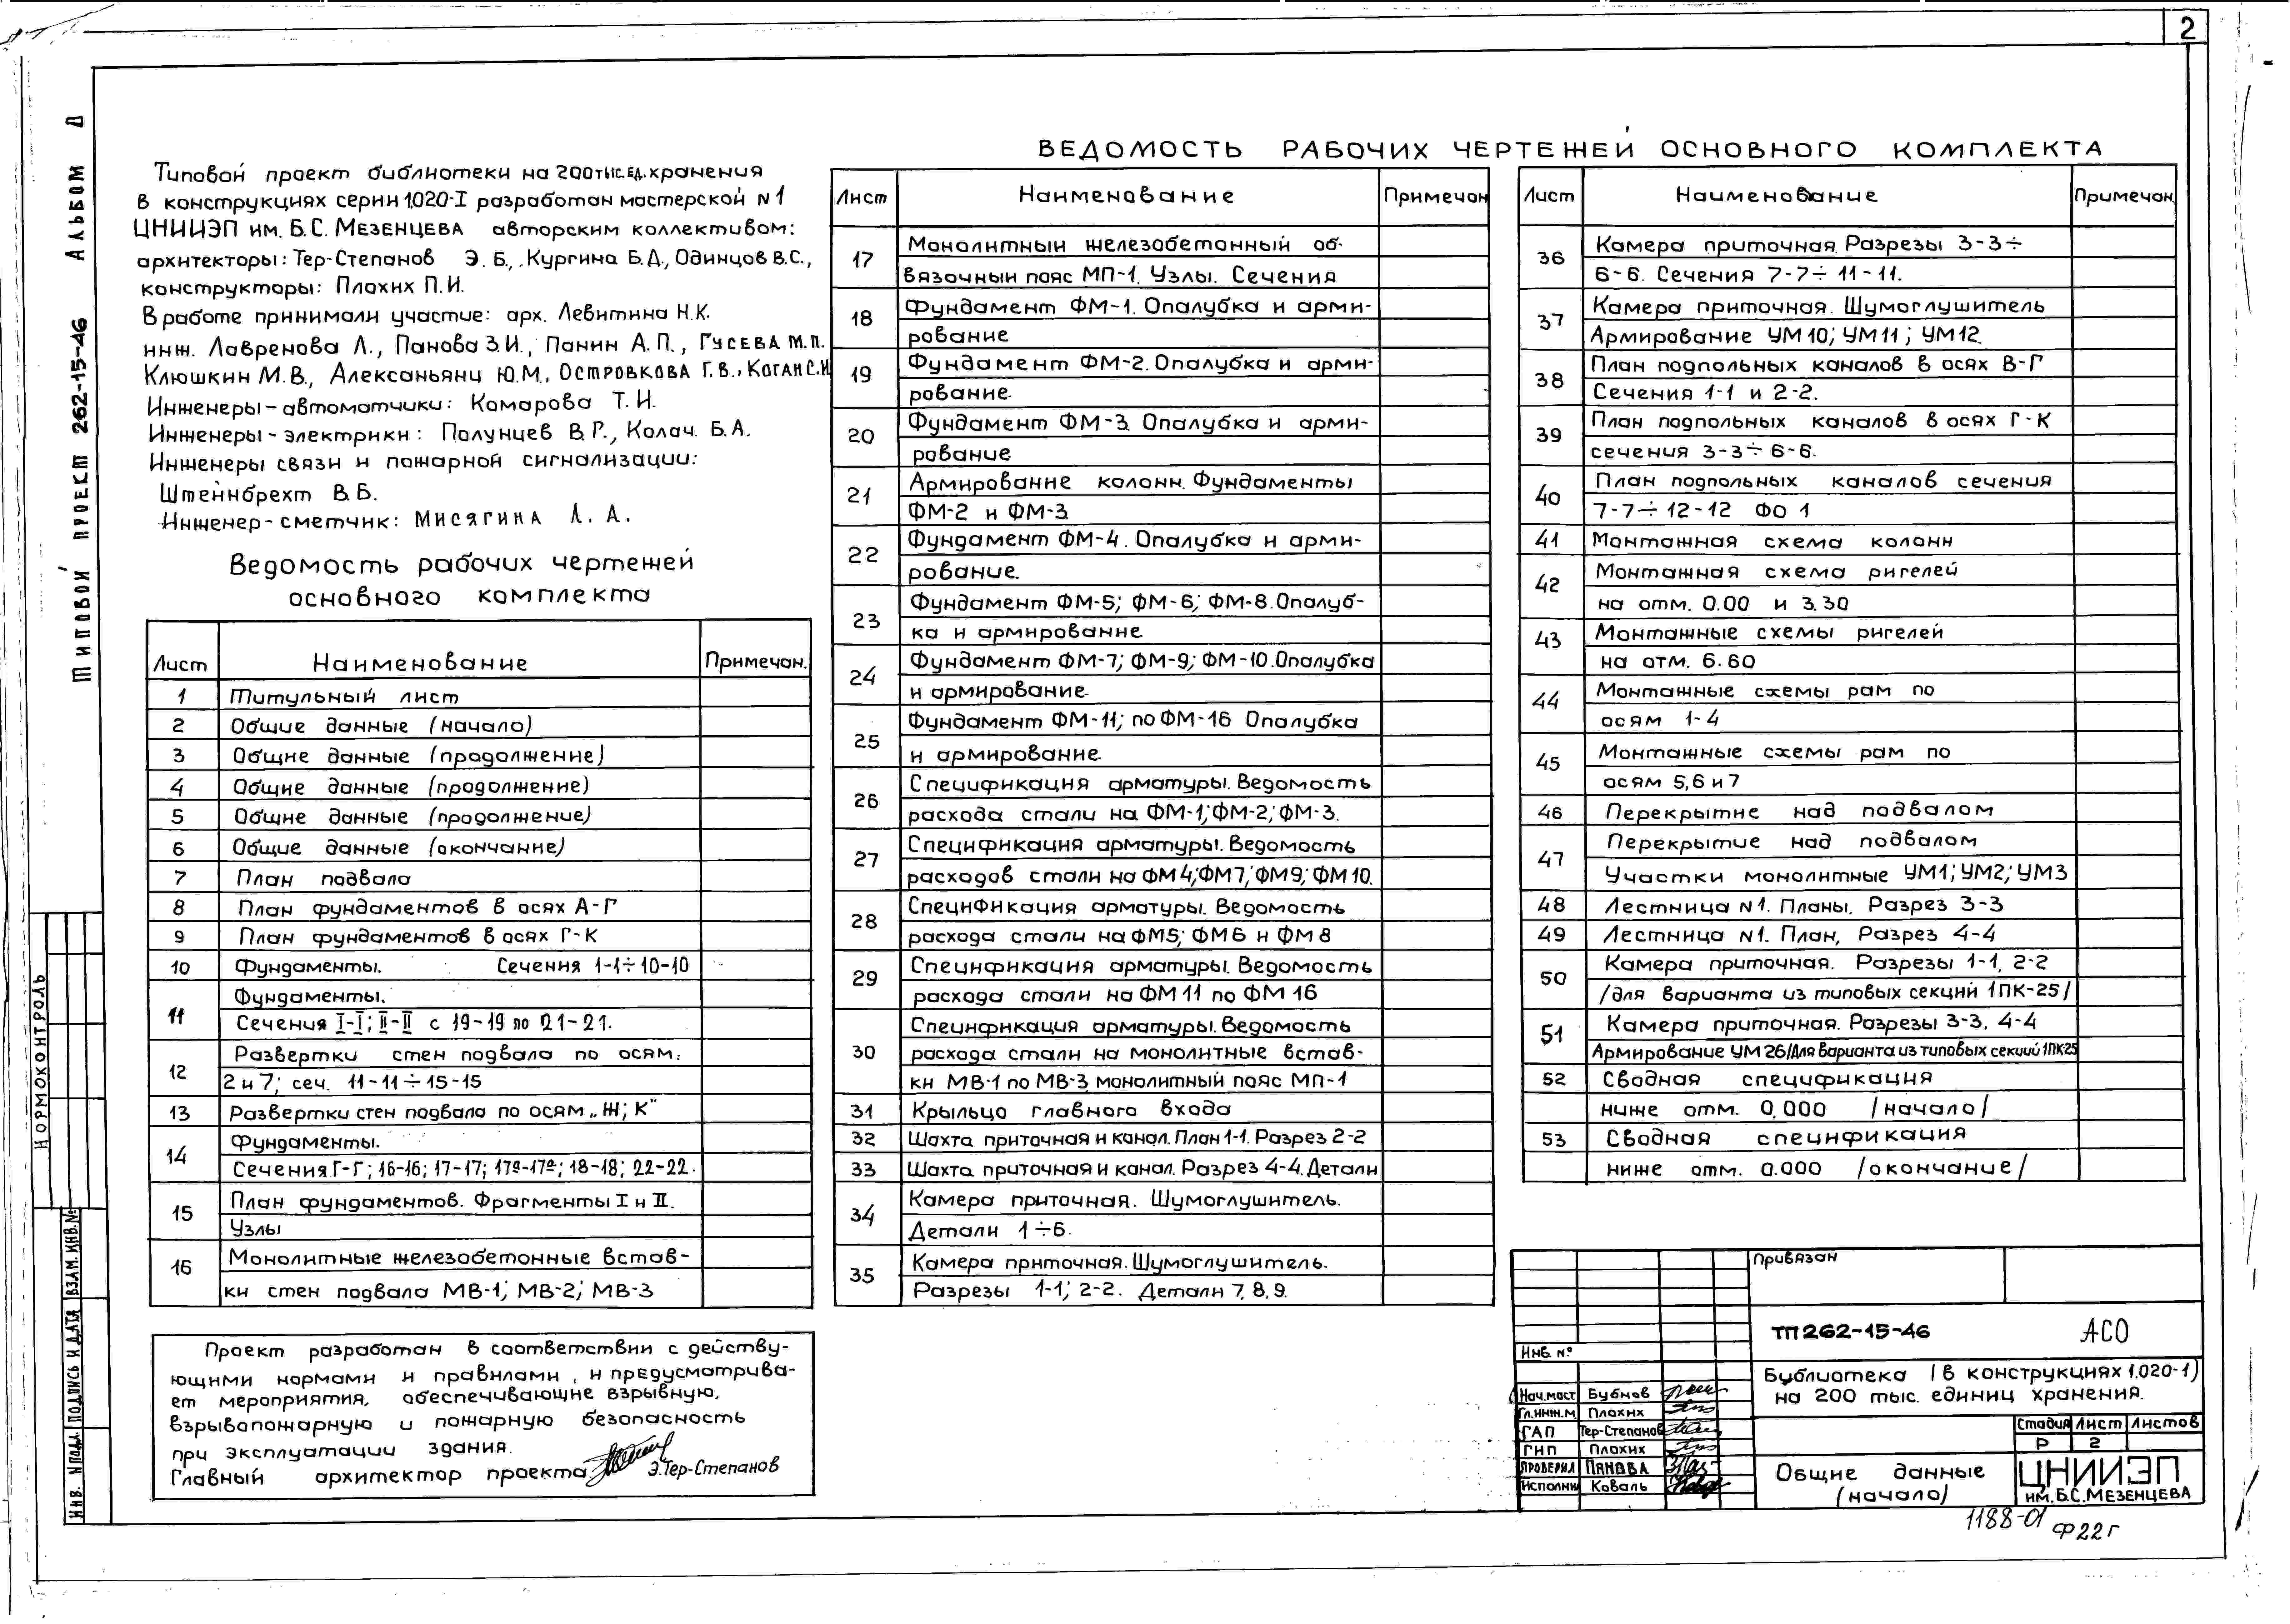 2
Типовой проект 262-15-46 Альбом
Типовой проект библиотеки на 200 тыс. ед. хранения
в конструкциях серии 1.020-I разработан мастерской N1
ЦНИИЭП им. Б.С. Мезенцева авторским коллективом:
архитекторы: Тер-Степанов Э.Б., Кургина Б.Д., Одинцов В.С.,
конструкторы: Плохих П.И.
В работе принимали участие: арх. Левитина Н.К.
инж. Лавренова Л., Панова З.И., Панин А.П., Гусева М.П.
Клюшкин М.В., Алексаньянц Ю.М., Островкова Г.В., Коган С.И
Инженеры-автоматчики: Комарова Т.И.
Инженеры-электрики: Полунцев В.Г., Колач. Б.А.
Инженеры связи и пожарной сигнализации:
Штейнбрехт В.Б.
Инженер-сметчик: Мисягина Л.А.
Ведомость рабочих чертежей
основного комплекта
Лист Наименование Примечан.
1 Титульный лист
2 Общие данные (начало)
3 Общие данные (продолжение)
4 Общие данные (продолжение)
5 Общие данные (продолжение)
6 Общие данные (окончание)
7 План подвала
8 План фундаментов в осях А-Г
9 План фундаментов в осях Г-К
10 Фундаменты. Сечения 1-1÷10-10
11 Фундаменты.
Сечения I-I; II-II с 19-19 по 21-21.
12 Развертки стен подвала по осям:
2 и 7; сеч. 11-11÷15-15
13 Развертки стен подвала по осям „Ж; К"
14 Фундаменты.
Сечения Г-Г; 16-16; 17-17; 17а-17а; 18-18; 22-22.
15 План фундаментов. Фрагменты I и II.
Узлы
16 Монолитные железобетонные встав-
ки стен подвала МВ-1; МВ-2; МВ-3
Проект разработан в соответствии с действу-
ющими нормами и правилами, и предусматрива-
ет мероприятия, обеспечивающие взрывную,
взрывопожарную и пожарную безопасность
при эксплуатации здания.
Главный архитектор проекта Э.Тер-Степанов
ВЕДОМОСТЬ РАБОЧИХ ЧЕРТЕЖЕЙ ОСНОВНОГО КОМПЛЕКТА
Лист Наименование Примечан
17 Монолитный железобетонный об-
вязочный пояс МП-1. Узлы. Сечения
18 Фундамент ФМ-1. Опалубка и арми-
рование
19 Фундамент ФМ-2. Опалубка и арми-
рование.
20 Фундамент ФМ-3. Опалубка и арми-
рование
21 Армирование колонн. Фундаменты
ФМ-2 и ФМ-3
22 Фундамент ФМ-4. Опалубка и арми-
рование.
23 Фундамент ФМ-5; ФМ-6; ФМ-8. Опалуб-
ка и армирование
24 Фундамент ФМ-7; ФМ-9; ФМ-10. Опалубка
и армирование.
25 Фундамент ФМ-11; по ФМ-16 Опалубка
и армирование.
26 Спецификация арматуры. Ведомость
расхода стали на ФМ-1; ФМ-2; ФМ-3.
27 Спецификация арматуры. Ведомость
расходов стали на ФМ4; ФМ7; ФМ9; ФМ10.
28 Спецификация арматуры. Ведомость
расхода стали на ФМ5; ФМ6 и ФМ8
29 Спецификация арматуры. Ведомость
расхода стали на ФМ11 по ФМ16
30 Спецификация арматуры. Ведомость
расхода стали на монолитные встав-
ки МВ-1 по МВ-3, монолитный пояс МП-1
31 Крыльцо главного входа
32 Шахта приточная и канал. План 1-1. Разрез 2-2
33 Шахта приточная и канал. Разрез 4-4. Детали
34 Камера приточная. Шумоглушитель.
Детали 1÷6.
35 Камера приточная. Шумоглушитель.
Разрезы 1-1; 2-2. Детали 7, 8, 9.
Лист Наименование Примечан.
36 Камера приточная. Разрезы 3-3÷
6-6. Сечения 7-7÷11-11.
37 Камера приточная. Шумоглушитель
Армирование УМ10; УМ11; УМ12.
38 План подпольных каналов в осях В-Г
Сечения 1-1 и 2-2.
39 План подпольных каналов в осях Г-К
сечения 3-3÷6-6.
40 План подпольных каналов сечения
7-7÷12-12 ФО 1
41 Монтажная схема колонн
42 Монтажная схема ригелей
на отм. 0.00 и 3.30
43 Монтажные схемы ригелей
на отм. 6.60
44 Монтажные схемы рам по
осям 1-4
45 Монтажные схемы рам по
осям 5,6 и 7
46 Перекрытие над подвалом
47 Перекрытие над подвалом
Участки монолитные УМ1; УМ2; УМ3
48 Лестница N1. Планы. Разрез 3-3
49 Лестница N1. План, Разрез 4-4
50 Камера приточная. Разрезы 1-1, 2-2
/для варианта из типовых секций 1ПК-25/
51 Камера приточная. Разрезы 3-3, 4-4
Армирование УМ 26/Для варианта из типовых секций 1ПК25
52 Сводная спецификация
ниже отм. 0,000 /начало/
53 Сводная спецификация
ниже отм. 0.000 /окончание/
Привязан
Инв. №
ТП 262-15-46 АСО
Библиотека (в конструкциях 1.020-1)
на 200 тыс. единиц хранения.
Нач.маст Бубнов
Гл.инж.м. Плохих
ГАП Тер-Степанов
ГИП Плохих
Проверил Панова
Исполни Коваль
Стадия Лист Листов
Р 2
Общие данные
(начало)
ЦНИИЭП
им. Б.С. Мезенцева
1188-01 Ф22г
Нормоконтроль
Инв. N подл. Подпись и дата Взам. инв. №